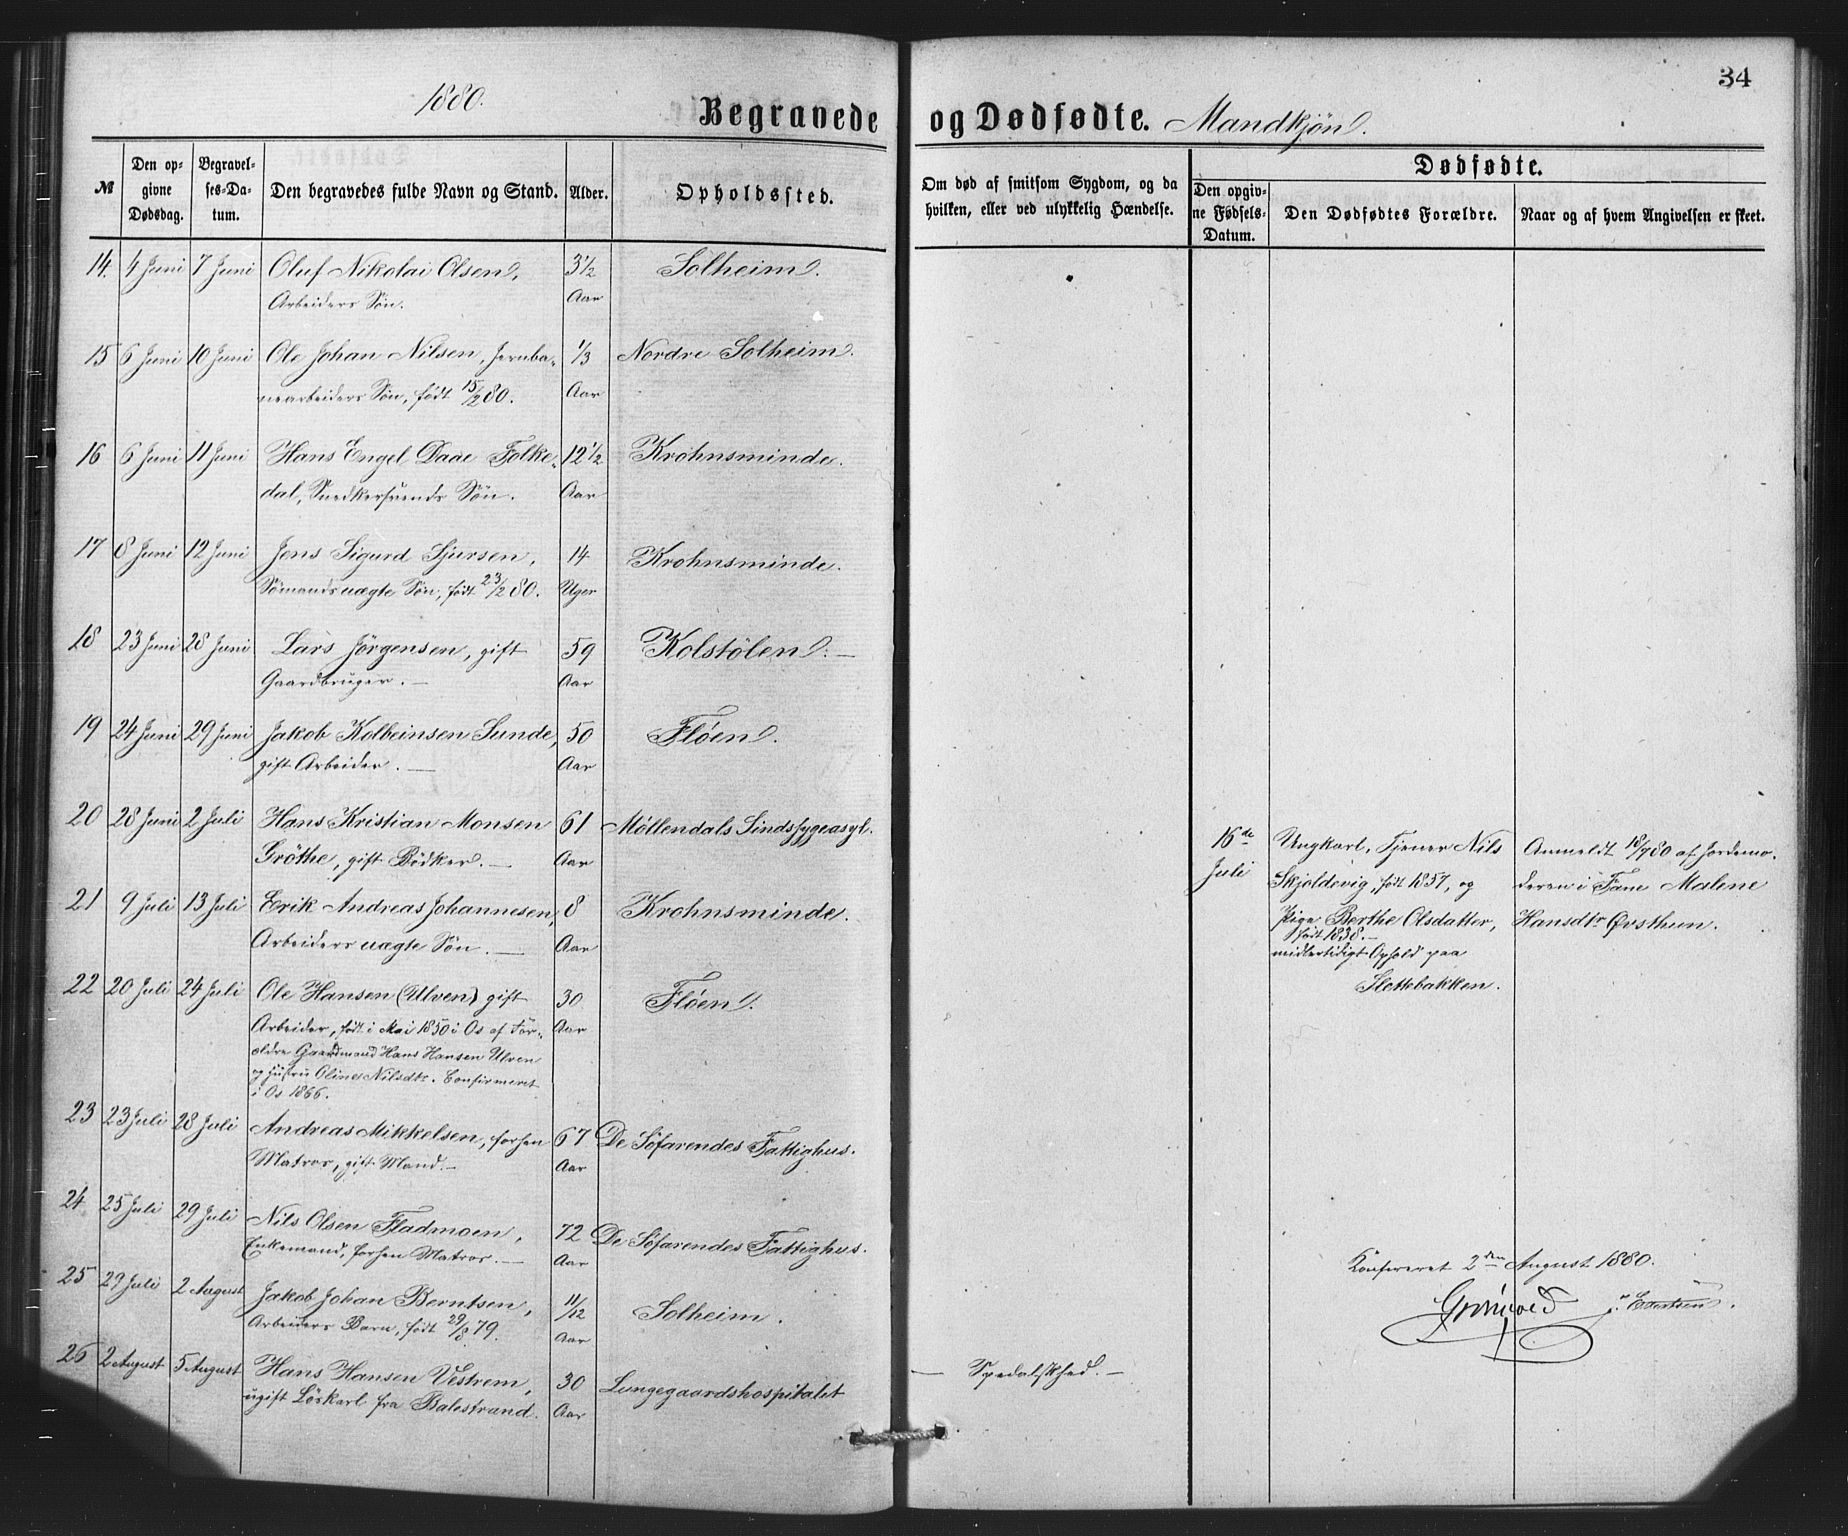 34
1880.
Begravede og Dødfødte. Mandkjøn.
№
Den opgivne Dødsdag.
Begravelses-Datum.
Den begravedes fulde Navn og Stand.
Alder.
Opholdssted.
Om død af smitsom Sygdom, og da hvilken, eller ved ulykkelig Hændelse.
Dødfødte.
Den opgivne Fødsels-Datum.
Den Dødfødtes Forældre.
Naar og af hvem Angivelsen er skeet.
14. 4 Juni 7 Juni Oluf Nikolai Olsen, 3½ Solheim.
Arbeiders Søn. Aar
15 6 Juni 10 Juni Ole Johan Nilsen, Jernba- 1/3 Nordre Solheim.
nearbeiders Søn, født 15/2 80. Aar
16 6 Juni 11 Juni Hans Engel Daae Folke- 12½ Krohnsminde.
dal, Snedkersvends Søn. Aar
17 8 Juni 12 Juni Jens Sigurd Sjursen, 14 Krohnsminde.
Sømands uægte Søn, født 23/2 80. Uger
18 23 Juni 28 Juni Lars Jörgensen, gift 59 Kolstölen. —
Gaardbruger. — Aar
19 24 Juni 29 Juni Jakob Kolbeinsen Sunde, 50 Flöen.
gift Arbeider. — Aar
20 28 Juni 2 Juli Hans Kristian Monsen 61 Möllendals Sindssygeasyl.
Gröthe, gift Bödker. — Aar
21 9 Juli 13 Juli Erik Andreas Johannesen, 8 Krohnsminde.
Arbeiders uægte Søn. — Aar
22 20 Juli 24 Juli Ole Hansen (Ulven) gift 30 Flöen.
Arbeider, født i Mai 1850 i Os af For- Aar
ældre Gaardmand Hans Hansen Ulven
og Hustru Oline Nilsdtr. Confirmeret
i Os 1866.
23 23 Juli 28 Juli Andreas Mikkelsen, forhen 67 De Söfarendes Fattighus.
Matros, gift Mand. — Aar
24 25 Juli 29 Juli Nils Olsen Fladmoen, 72 De Söfarendes Fattighus.
Enkemand, forhen Matros. — Aar
25 29 Juli 2 August Jakob Johan Berntsen, 11/12 Solheim.
Arbeiders Barn, født 29/8 79. Aar
26 2 August 5 August Hans Hansen Vestrem, 30 Lungegaardshospitalet — Spedalskhed. —
ugift Löskarl fra Balestrand. Aar
16de Ungkarl, Tjener Nils Anmeldt 18/7 80 af Jordemo-
Juli Skjoldevig, født 1857, og deren i Fane Malene
Pige Berthe Olsdatter, Hansdtr Øvsthun.
født 1838. —
midlertidigt Ophold paa
Slettebakken.
Konfereret 2den August 1880.
Grönvold